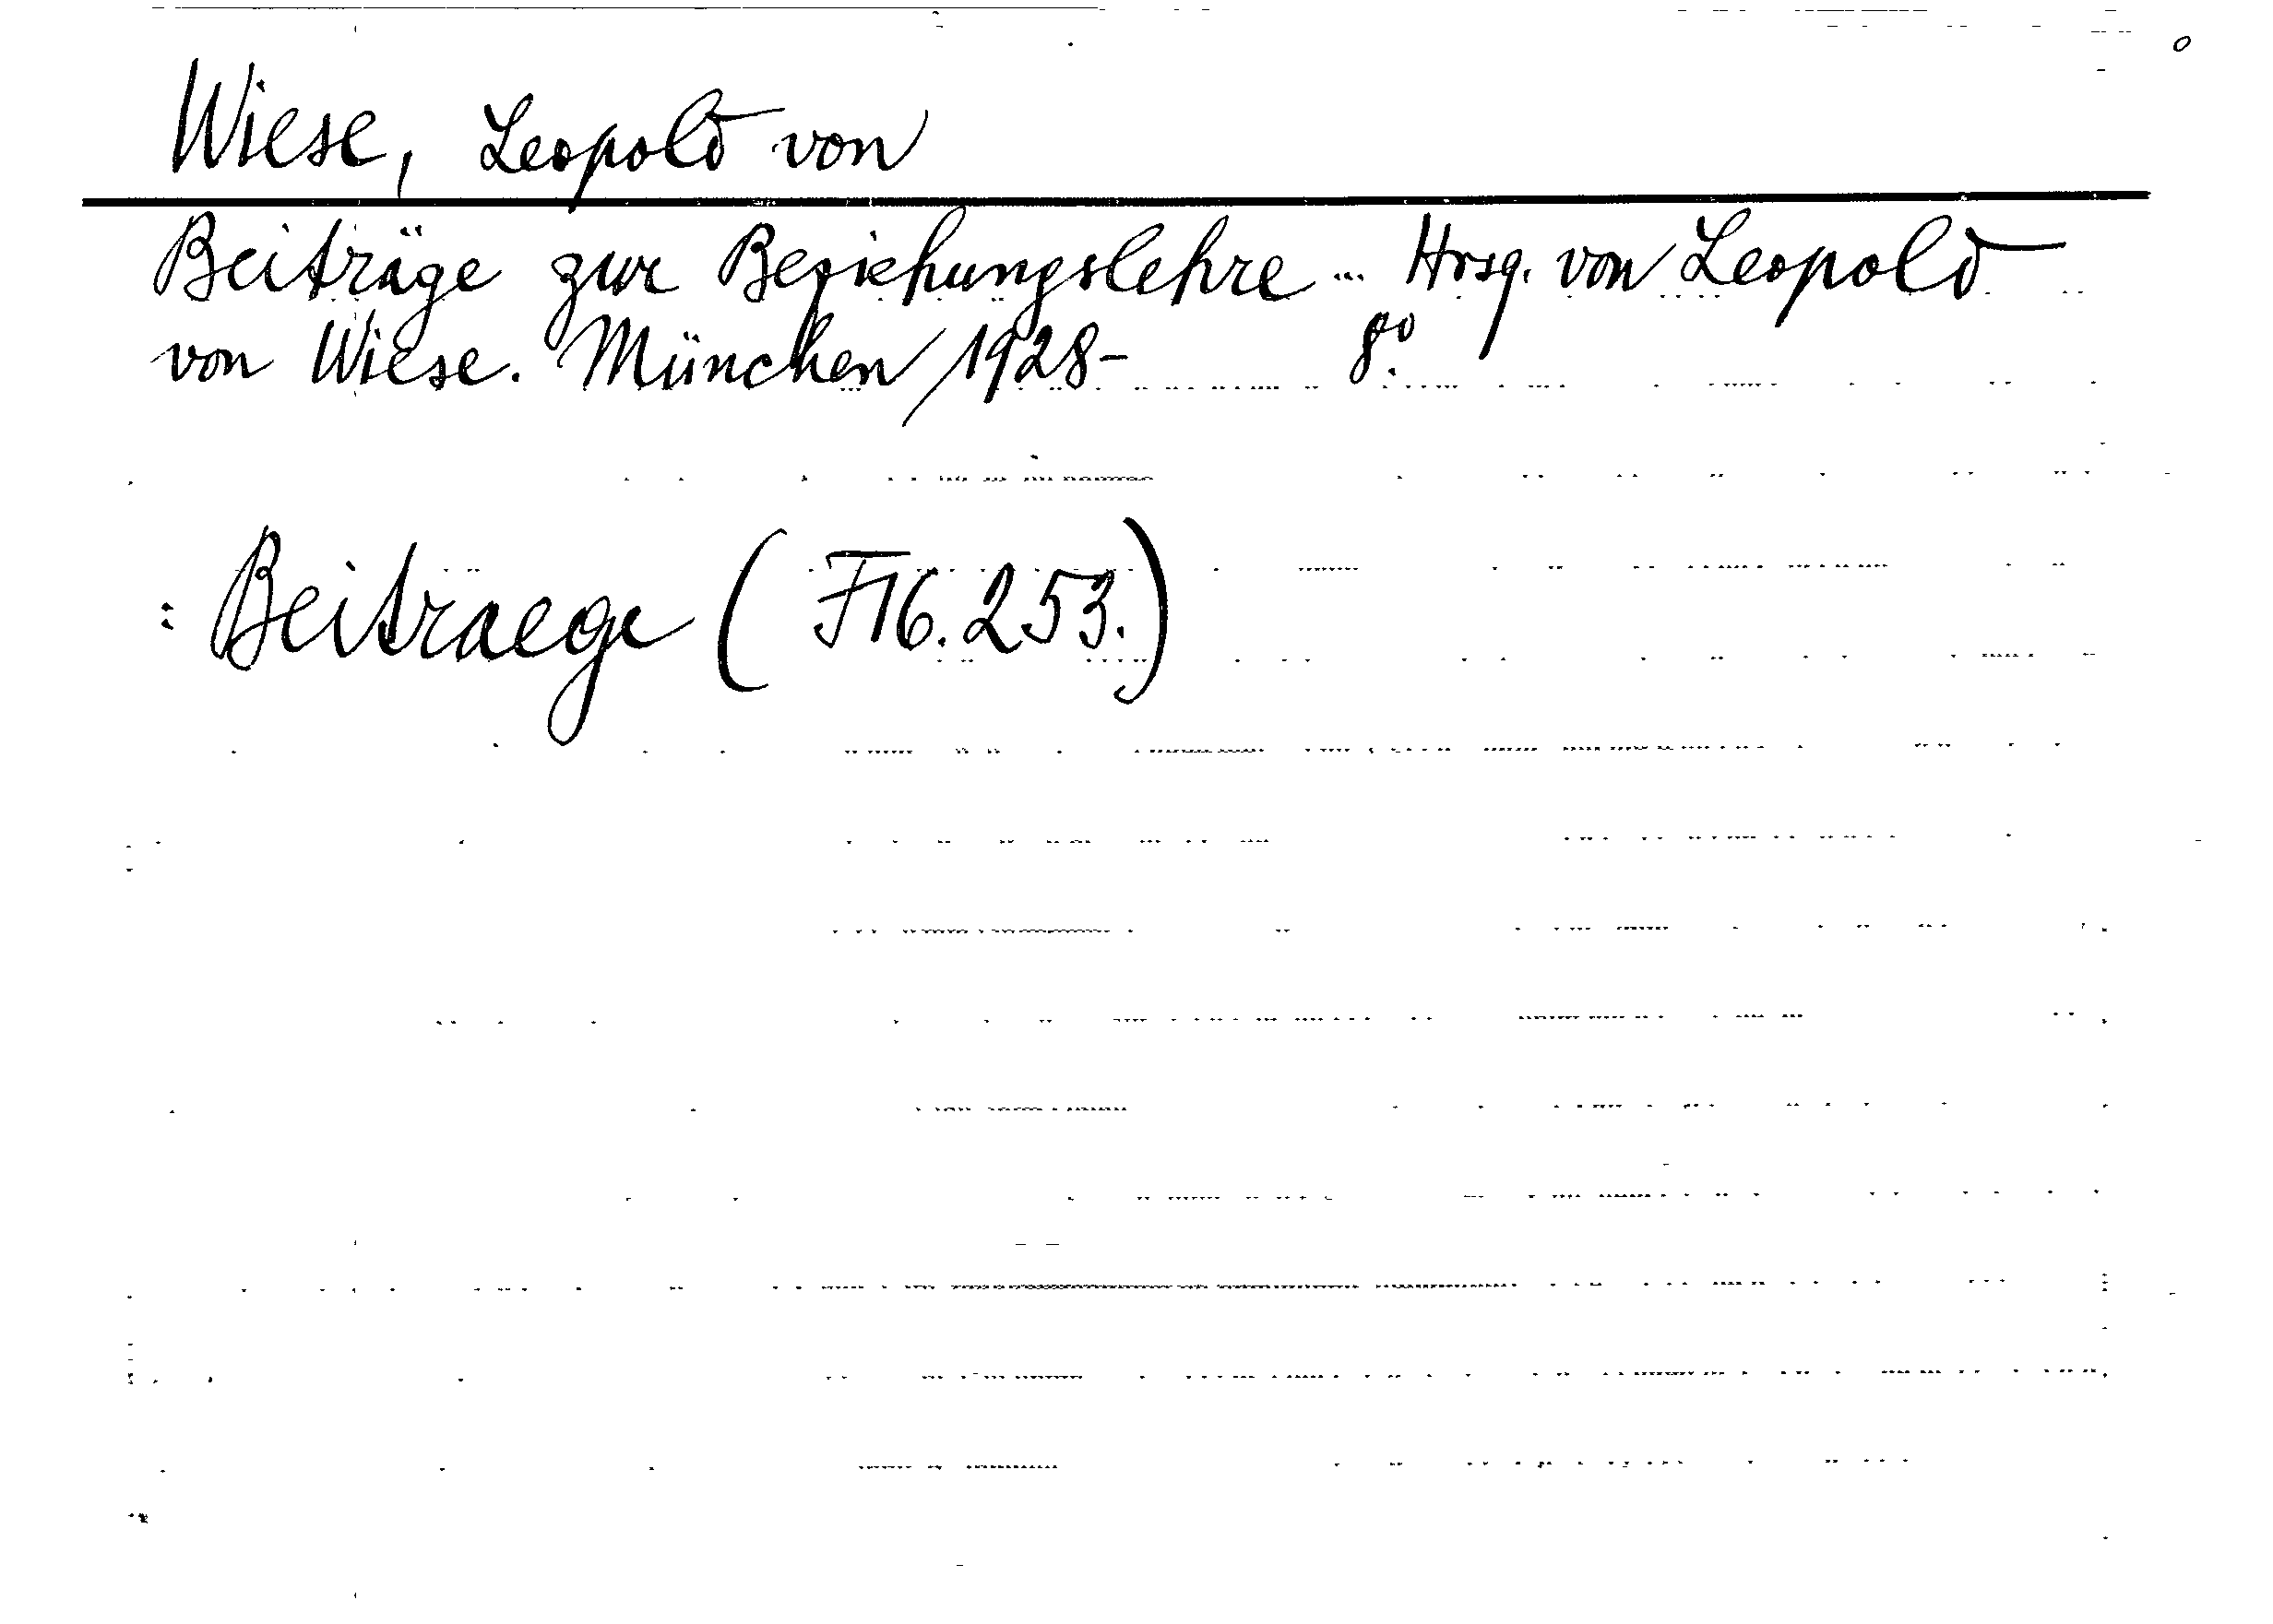 Wiese, Leopold von
Beiträge zur Beziehungslehre ... Hrsg. von Leopold
von Wiese. München 1928- 8º.
: Beitraege (F16.253.)